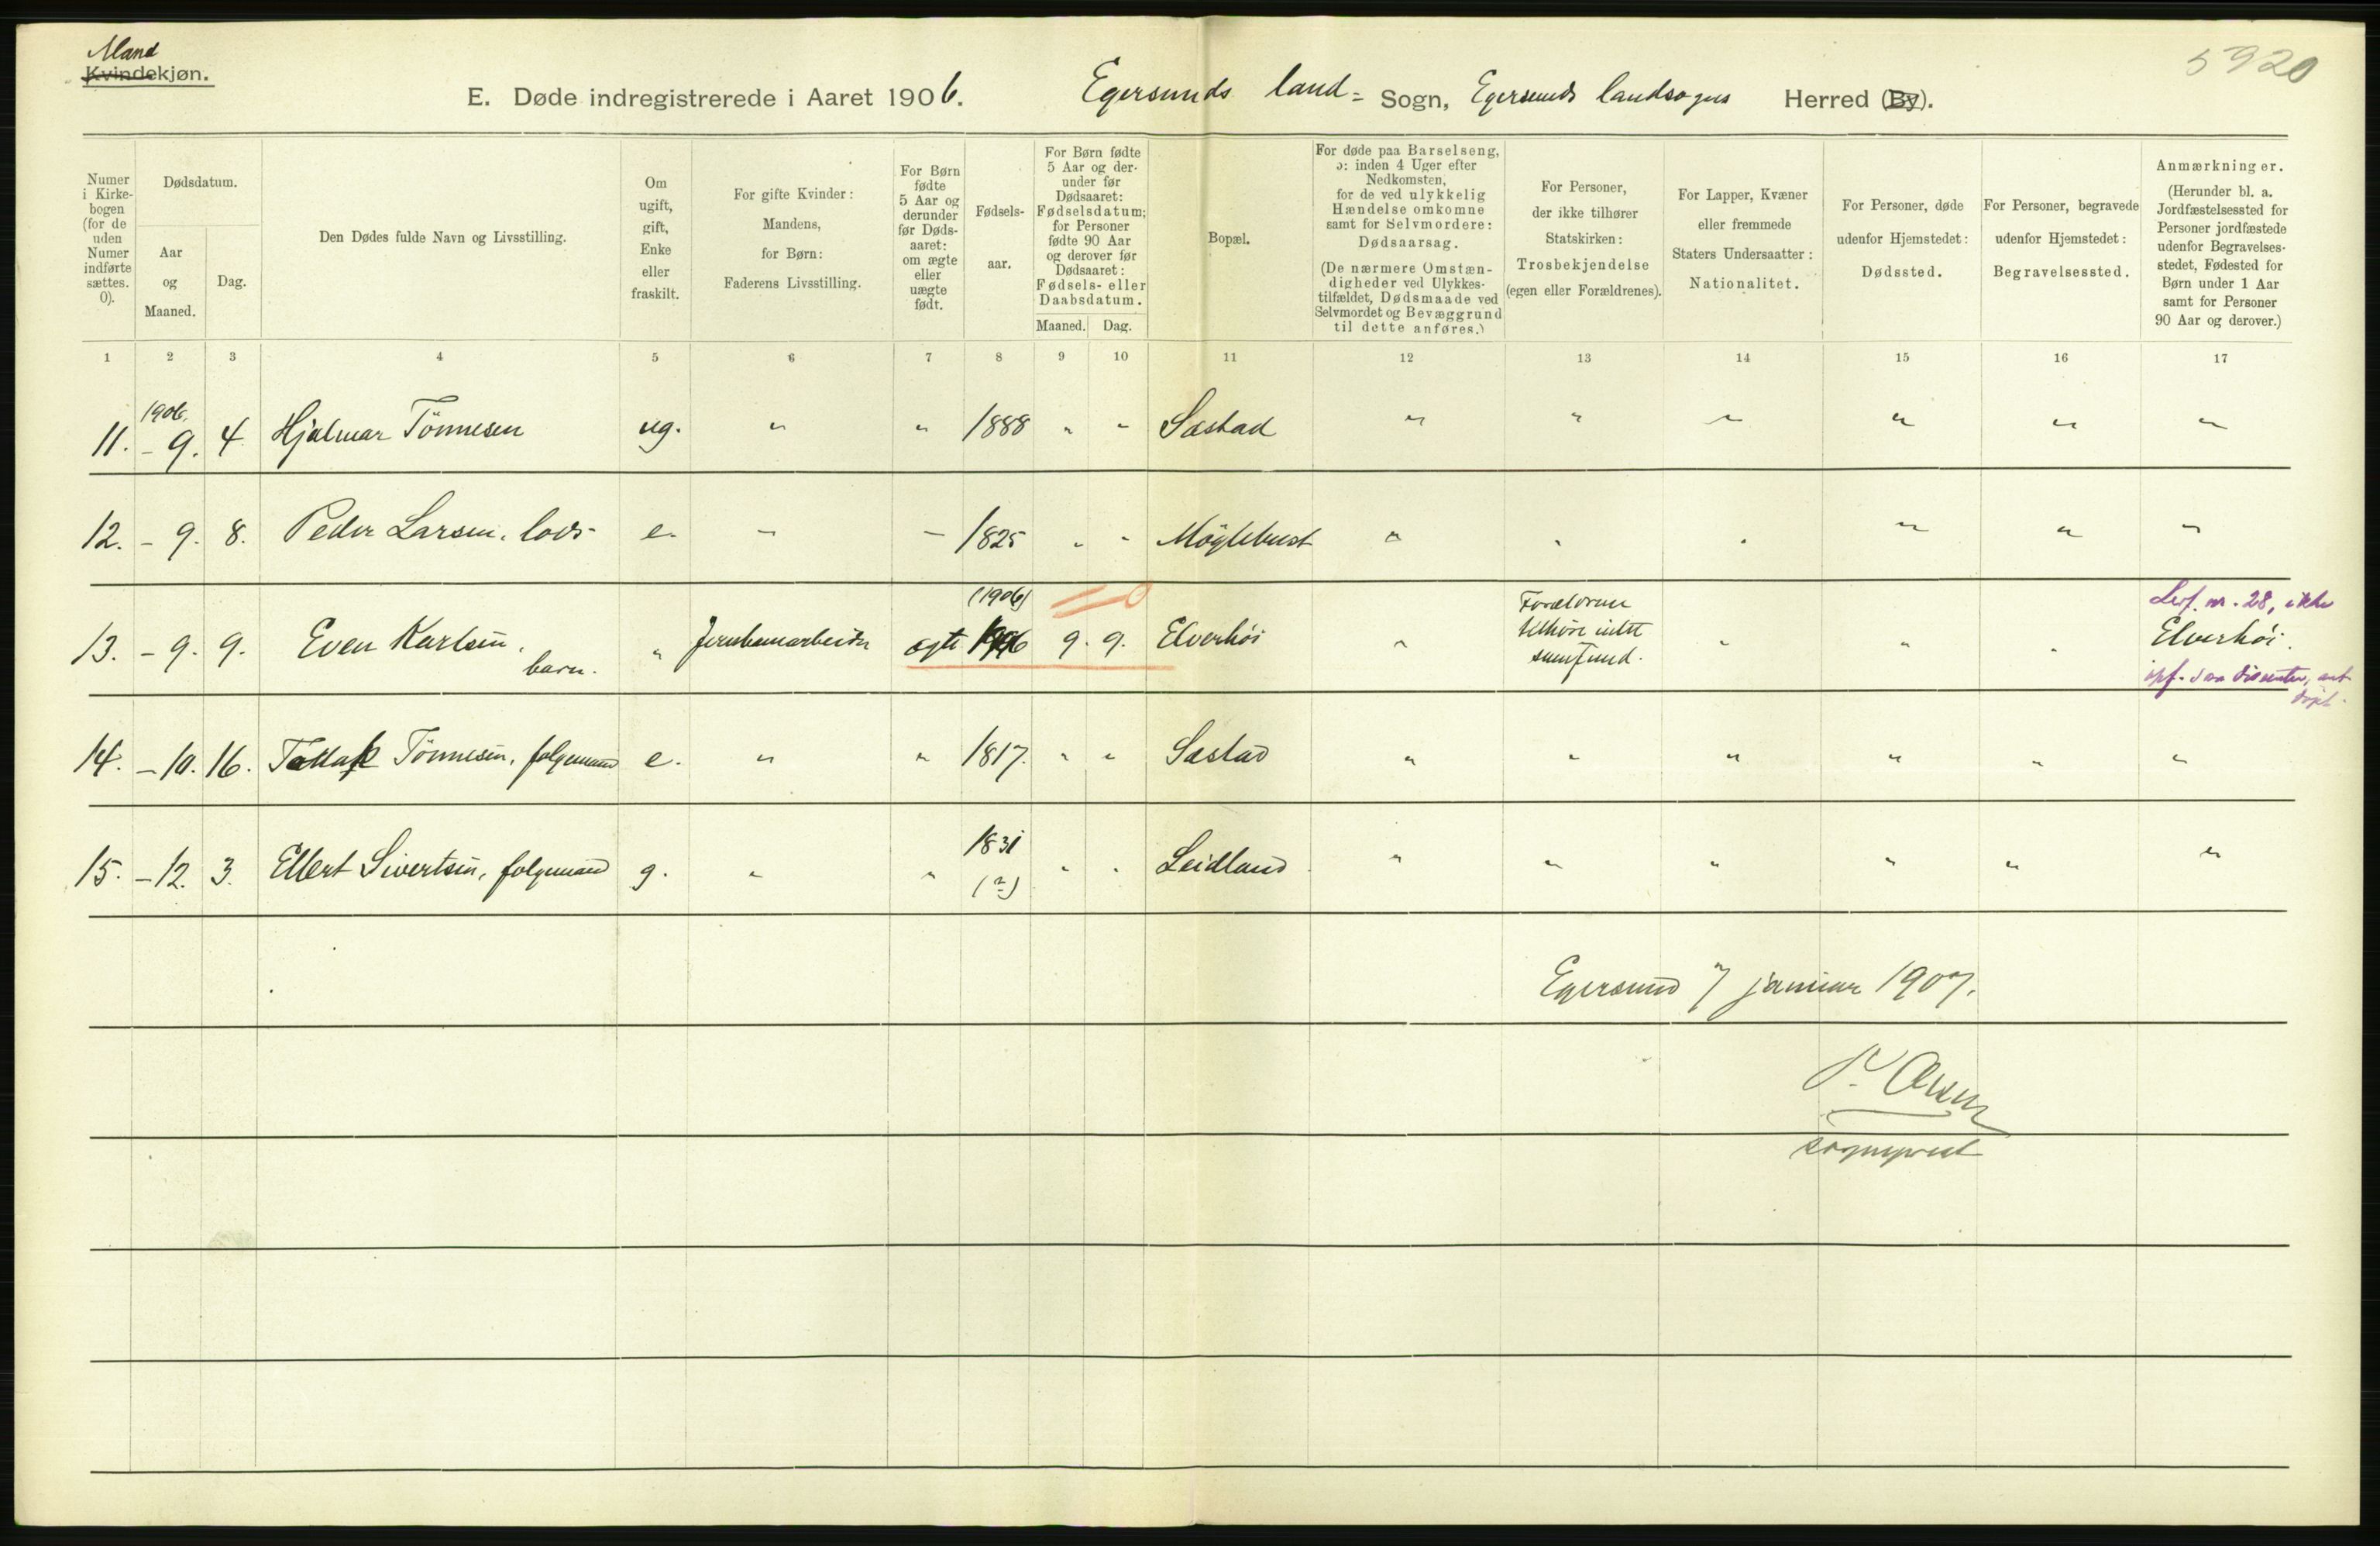 Mand
Kvindekjøn.
5920
E. Døde indregistrerede i Aaret 1906. Egersunds land= Sogn, Egersunds landsogns Herred (By).
Numer i Kirkebogen (for de uden Numer indførte sættes. 0).
Dødsdatum.
Aar og Maaned.
Dag.
Den Dødes fulde Navn og Livsstilling.
Om ugift, gift, Enke eller fraskilt.
For gifte Kvinder: Mandens, for Børn: Faderens Livsstilling.
For Børn fødte 5 Aar og derunder før Dødsaaret: om ægte eller uægte født.
Fødselsaar.
For Børn fødte 5 Aar og derunder før Dødsaaret: Fødselsdatum; for Personer fødte 90 Aar og derover før Dødsaaret: Fødsels- eller Daabsdatum.
Maaned. Dag.
Bopæl.
For døde paa Barselseng, ɔ: inden 4 Uger efter Nedkomsten, for de ved ulykkelig Hændelse omkomne samt for Selvmordere: Dødsaarsag.
(De nærmere Omstændigheder ved Ulykkestilfældet, Dødsmaade ved Selvmordet og Bevæggrund til dette anføres.)
For Personer, der ikke tilhører Statskirken: Trosbekjendelse (egen eller Forældrenes).
For Lapper, Kvæner eller fremmede Staters Undersaatter: Nationalitet.
For Personer, døde udenfor Hjemstedet: Dødssted.
For Personer, begravede udenfor Hjemstedet: Begravelsessted.
Anmærkninger.
(Herunder bl. a. Jordfæstelsessted for Personer jordfæstede udenfor Begravelsesstedet, Fødested for Børn under 1 Aar samt for Personer 90 Aar og derover.)
1 2 3 4 5 6 7 8 9 10 11 12 13 14 15 16 17
1906.
11. - 9. 4. Hjalmar Tönnesen ug. " " 1888 " " Sæstad " " " " " "
12. - 9. 8. Peder Larsen, lods e. " - 1825 " " Möglebust " " " " " "
(1906)
13. - 9. 9. Even Karlsen, barn. " Jernbanearbeider ægte 1906 9. 9. Elverhöi " Forældrene tilhöre intet samfund. " " " Elverhöi.
Levf. nr. 28, ikke
14. - 10. 16. Tönnesen, folgemand e. " " 1817. " " Sæstad " " " " " "
15. - 12. 3. Ellert Sivertsen, folgemand g. " " 1831 (?) " " Leidland " " " " " "
Egersund 7 januar 1907.
sogneprest